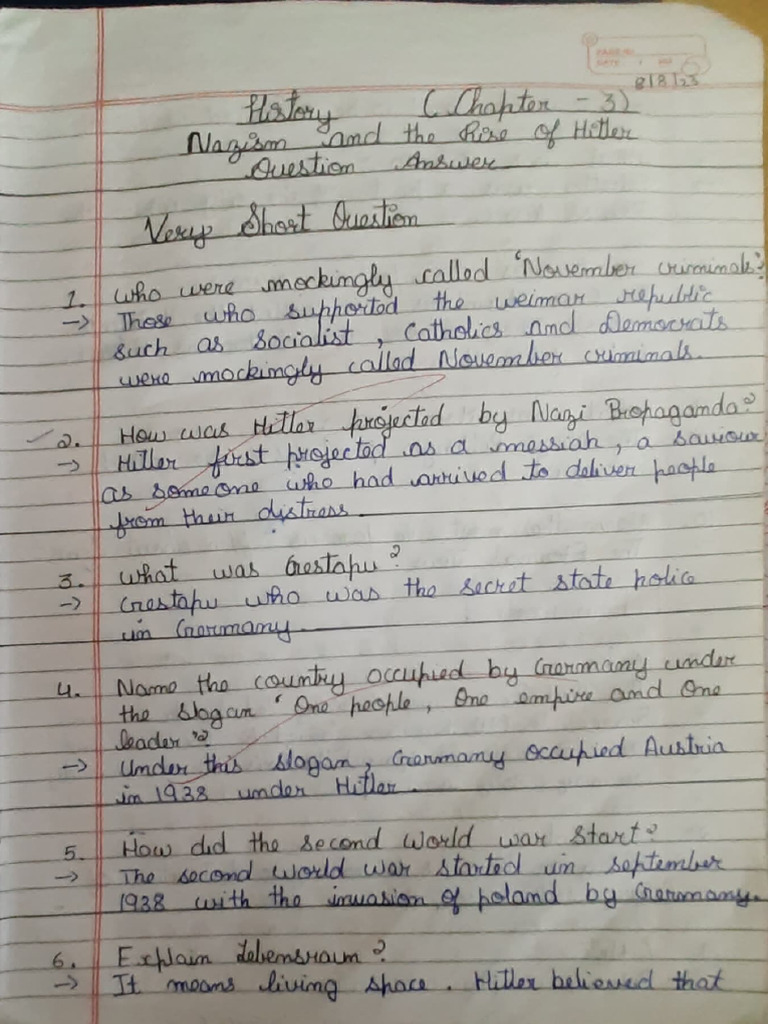 PAGE NO.
DATE
8/8/23
History (Chapter - 3)
Nazism and the Rise of Hitler
Question Answer
Very Short Question
1. Who were mockingly called 'November criminals'?
→ Those who supported the weimar republic
such as socialist, Catholics and Democrats
were mockingly called November criminals.
2. How was Hitler projected by Nazi Propaganda?
→ Hitler first projected as a messiah, a saviour
as someone who had arrived to deliver people
from their distress.
3. What was Gestapu?
→ Gestapu who was the secret state police
in Germany.
4. Name the country occupied by Germany under
the slogan 'One people, One empire and One
leader'?
→ Under this slogan, Germany occupied Austria
in 1938 under Hitler.
5. How did the second world war start?
→ The second world war started in september
1938 with the invasion of poland by Germany.
6. Explain Lebensraum?
→ It means living space. Hitler believed that